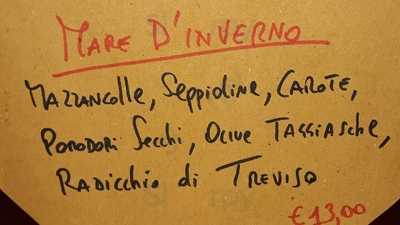 MARE D'INVERNO
MAZZANCOLLE, SEPPIOLINE, CAROTE,
POMODORI SECCHI, OLIVE TAGGIASCHE,
RADICCHIO di TREVISO
€ 13,00